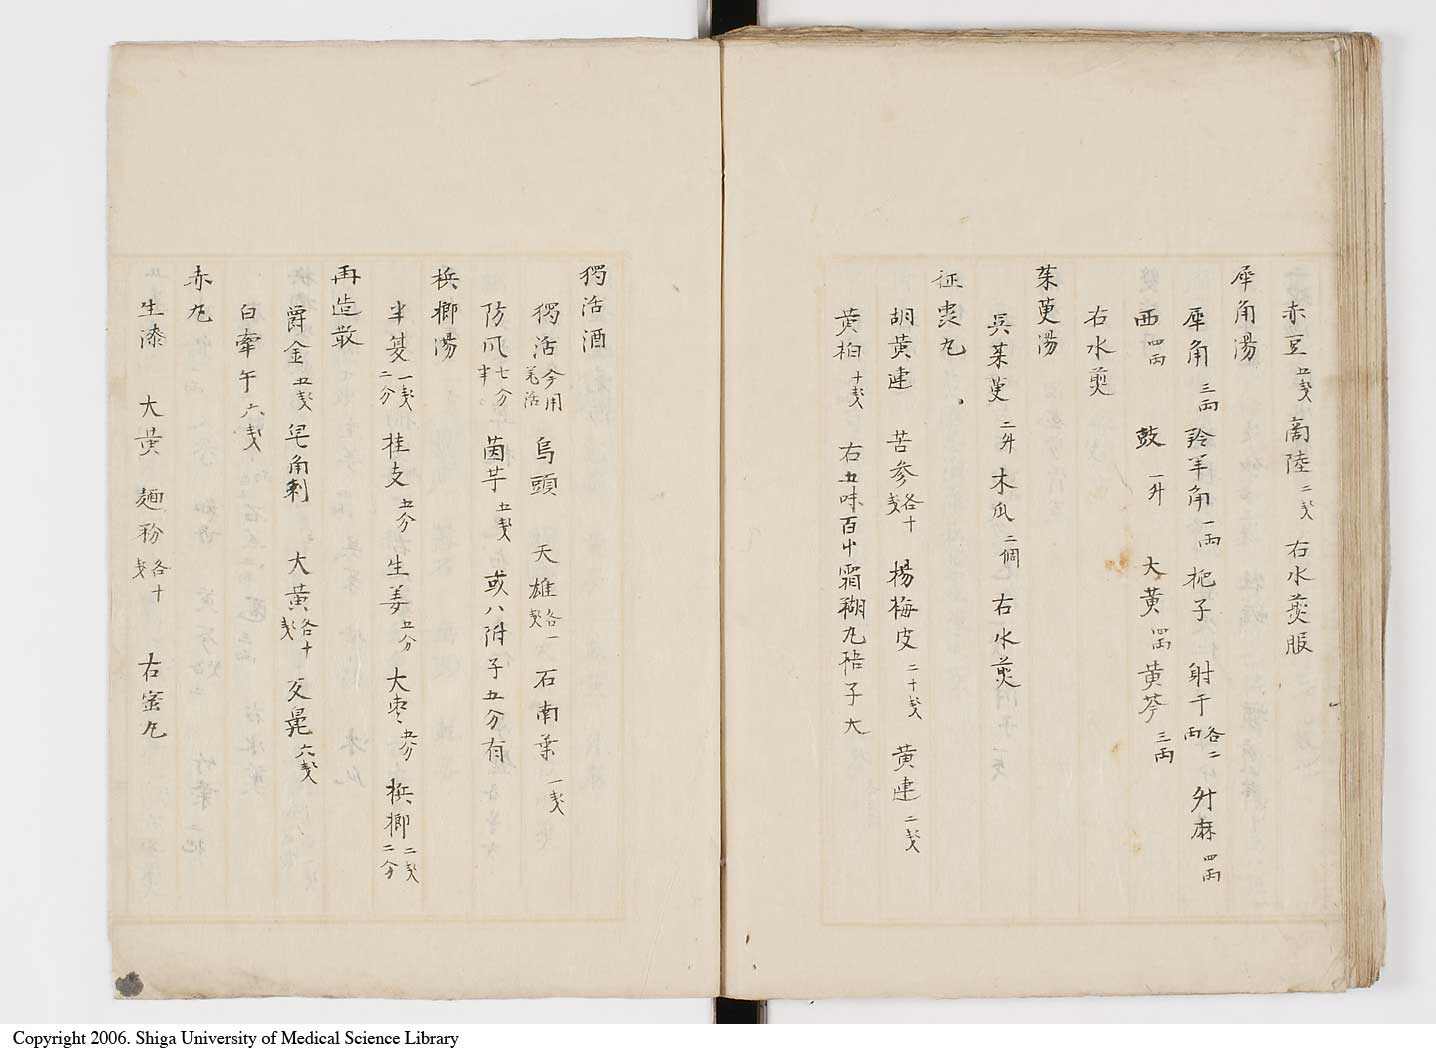 赤豆五戔 商陸二戔 右水煎服
犀角湯
犀角三両 羚羊角一両 梔子 射干各二両 舛麻四両
西四両 豉一舛 大黄四両 黄芩三両
右水煎
茱萸湯
呉茱萸二舛 木瓜二個 右水煎
征衷丸
胡黄連 苦参各十戔 楊梅皮二十戔 黄連二戔
黄柏十戔 右五味百中霜糊丸梧子大
獨活酒
獨活今用羌活 烏頭 天雄各一戔 石南葉一戔
防风七分半 茵芋五戔 或八附子五分有
梹榔湯
半夏一戔二分 桂支五分 生姜五分 大枣五分 梹榔二戔二分
再造散
爵金五戔 皂角刺 大黄各十戔 反鼻六戔
白牽午六戔
赤丸
生漆 大黄 麺粉各十戔 右蜜丸
Copyright 2006. Shiga University of Medical Science Library